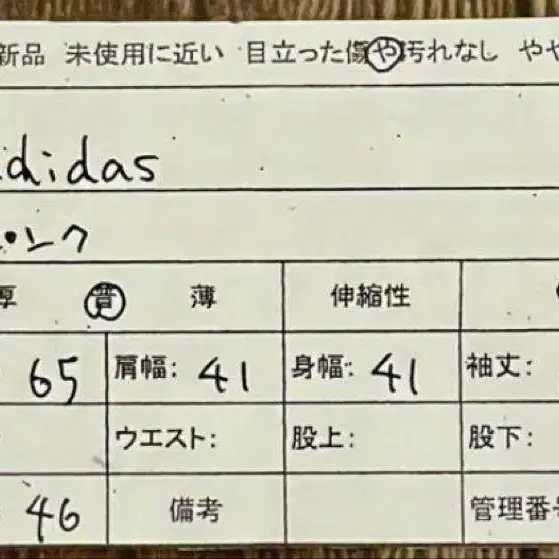 新品 未使用に近い 目立った傷や汚れなし やや
adidas
ピンク
厚 普 薄 伸縮性
65 肩幅: 41 身幅: 41 袖丈:
ウエスト: 股上: 股下:
46 備考 管理番号